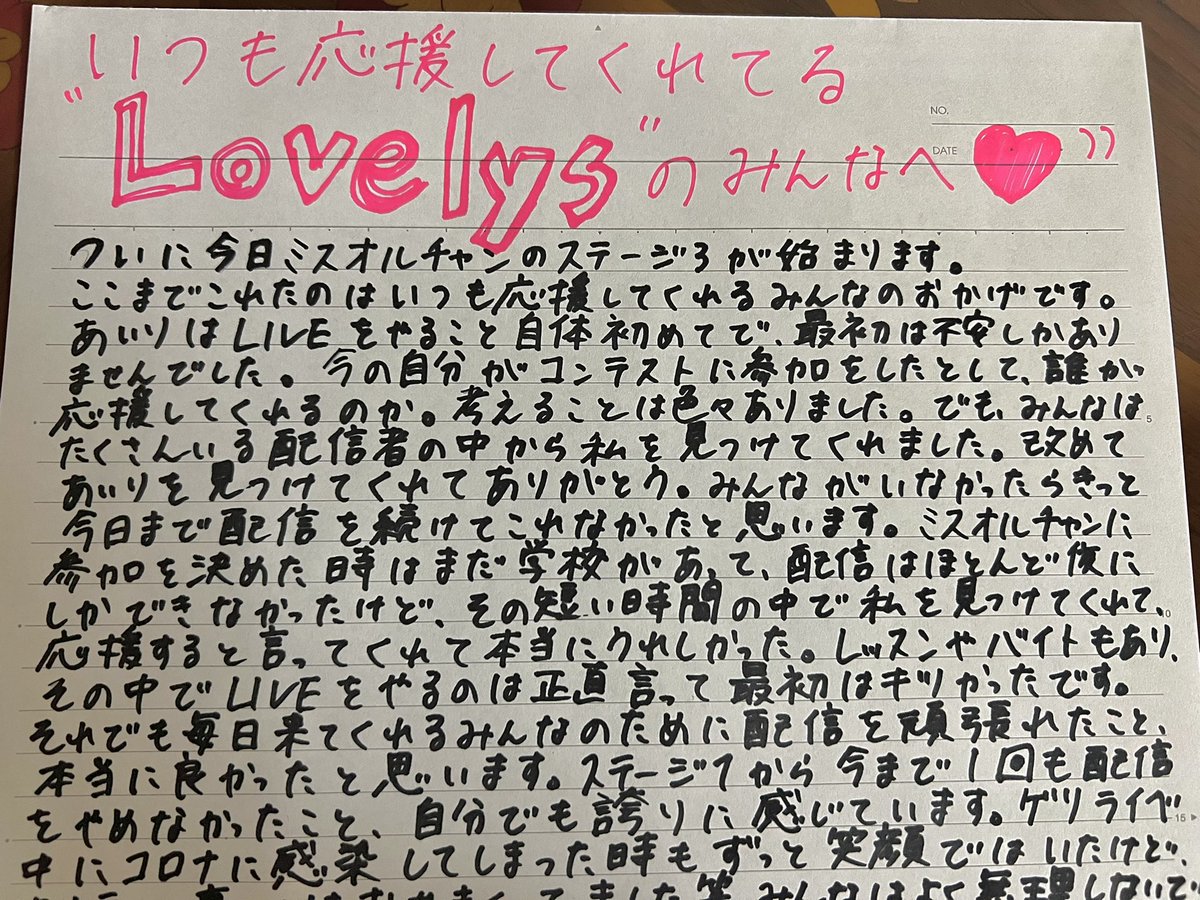 いつも応援してくれてる
"Lovelys"のみんなへ
NO.
DATE
ついに今日ミスオルチャンのステージ3が始まります。
ここまでこれたのはいつも応援してくれるみんなのおかげです。
あいりはLIVEをやること自体初めてで、最初は不安しかあり
ませんでした。今の自分がコンテストに参加をしたとして、誰かっ
応援してくれるのか。考えることは色々ありました。でも、みんなは
5
たくさんいる配信者の中から私を見つけてくれました。改めて
あいりを見つけてくれてありがとう。みんながいなかったらきっと
今日まで配信を続けてこれなかったと思います。ミスオルチャンに
参加を決めた時はまだ学校があって、配信はほとんど夜に
しかできなかったけど、その短い時間の中で私を見つけてくれて、
10
応援すると言ってくれて本当にうれしかった。レッスンやバイトもあり、
その中でLIVEをやるのは正直言って最初はキツかったです。
それでも毎日来てくれるみんなのために配信を頑張れたこと、
本当に良かったと思います。ステージ1から今まで1回も配信
をやめなかったこと、自分でも誇りに感じています。ゲリライベ
15
中にコロナに感染してしまった時もずっと笑顔ではいたけど、
みんなはよく無理しないで